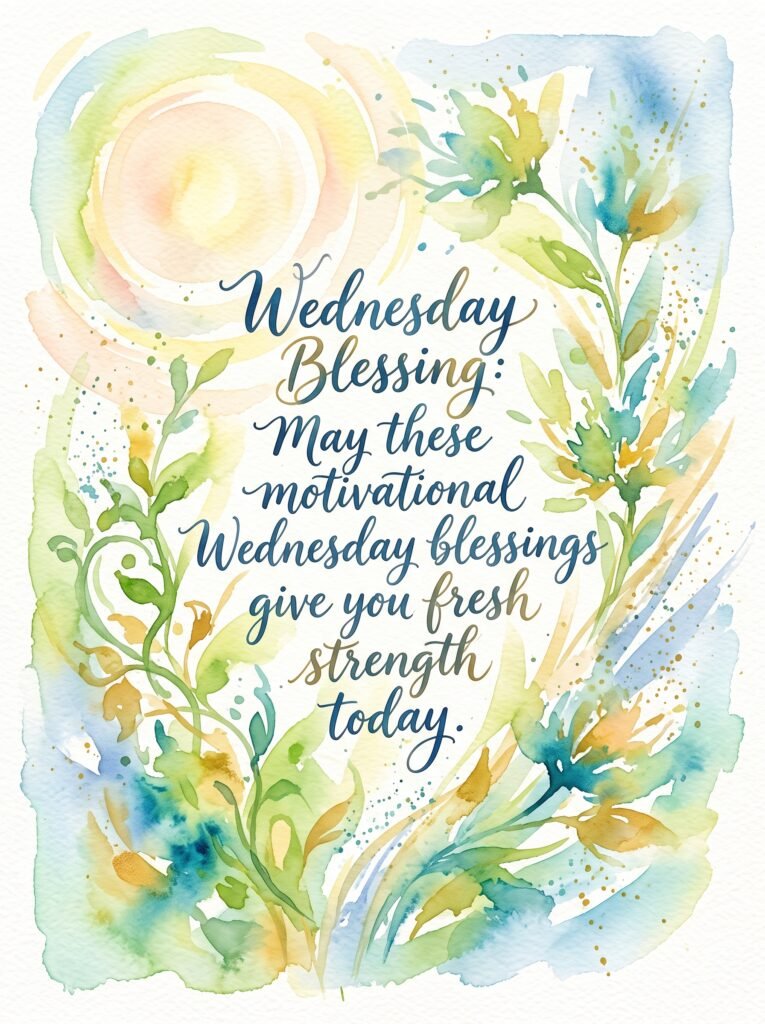 Wednesday
Blessing:
May these
motivational
Wednesday blessings
give you fresh
strength
today.